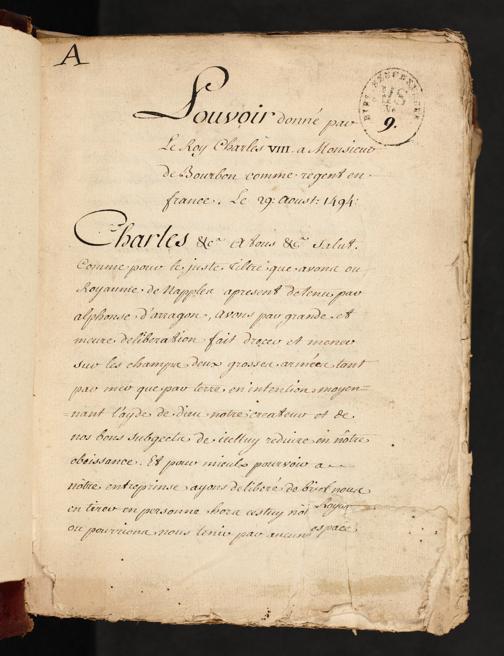 A
BIBL.
MS
9.
Pouvoir donné par
Le Roy Charles VIII. a Monsieur
de Bourbon comme regent en
france. Le 29. Aoust. 1494.
Charles &c.ª A tous &c.ª Salut.
Comme pour le juste tiltre que avons ou
Royaume de Napples apresent detenu par
alphonse d'arragon, Avons par grande et
meure deliberation fait dresser et mener
sur les champs deux grosses armées tant
par mer que par terre en intention moyen=
=nant l'ayde de dieu notre createur et de
nos bons subgects de icelluy reduire en nôtre
obeissance. Et pour mieulx pourvoir a
nôtre entreprinse ayons deliberé de brief nous
en tirer en personne hors cestuy nôt Royme
ou pourrions nous tenir par aucun espace